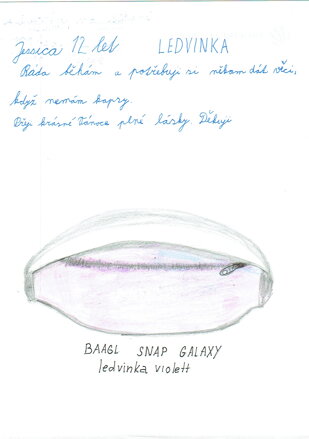 Jessica 12 let LEDVINKA
Ráda běhám a potřebuji si někam dát věci,
když nemám kapsy.
Přeji krásné Vánoce plné lásky. Děkuji
BAAGL SNAP GALAXY
ledvinka violett